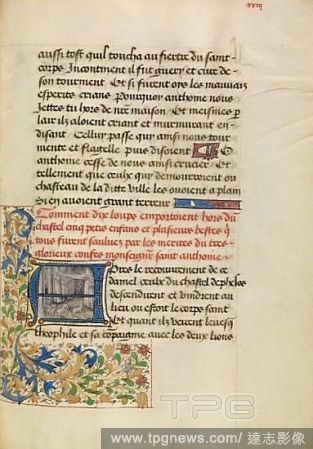 xxiij
aussi tost quil toucha au fiertre du saint
corps Incontinent il fut guery et cure de
son tourment Et si furent ors les mauuaix
esperite crians Pourquoy anthoine nous
Jettes tu hors de nre maison Et meismes p
lair ilz aloient criant et murmurant en
disant Celluy passe qui ainsi nous tour
mente et flagelle puis disoient O
anthoine cesse de nous ainsi crucier Et
tellement que ceulx qui demouroient ou
chasteau de la ditte ville les ouoient a plain
Si en auoient grant terreur
Comment dix loups emportoient hors du
chastel cinq petis enfans et plusieurs bestes q
tous furent sauluez par les merites du tres
glorieux confes monseignr saint anthoine
pres le retournement de ce
daniel ceulx du chastel dephebs
descendirent et vindrent au
lieu ou estoit le corps saint
Et quant ilz veirent leuesq
theophile et sa compaignie auec les deux lions
TPG
www.tpgnews.com/ 達志影像